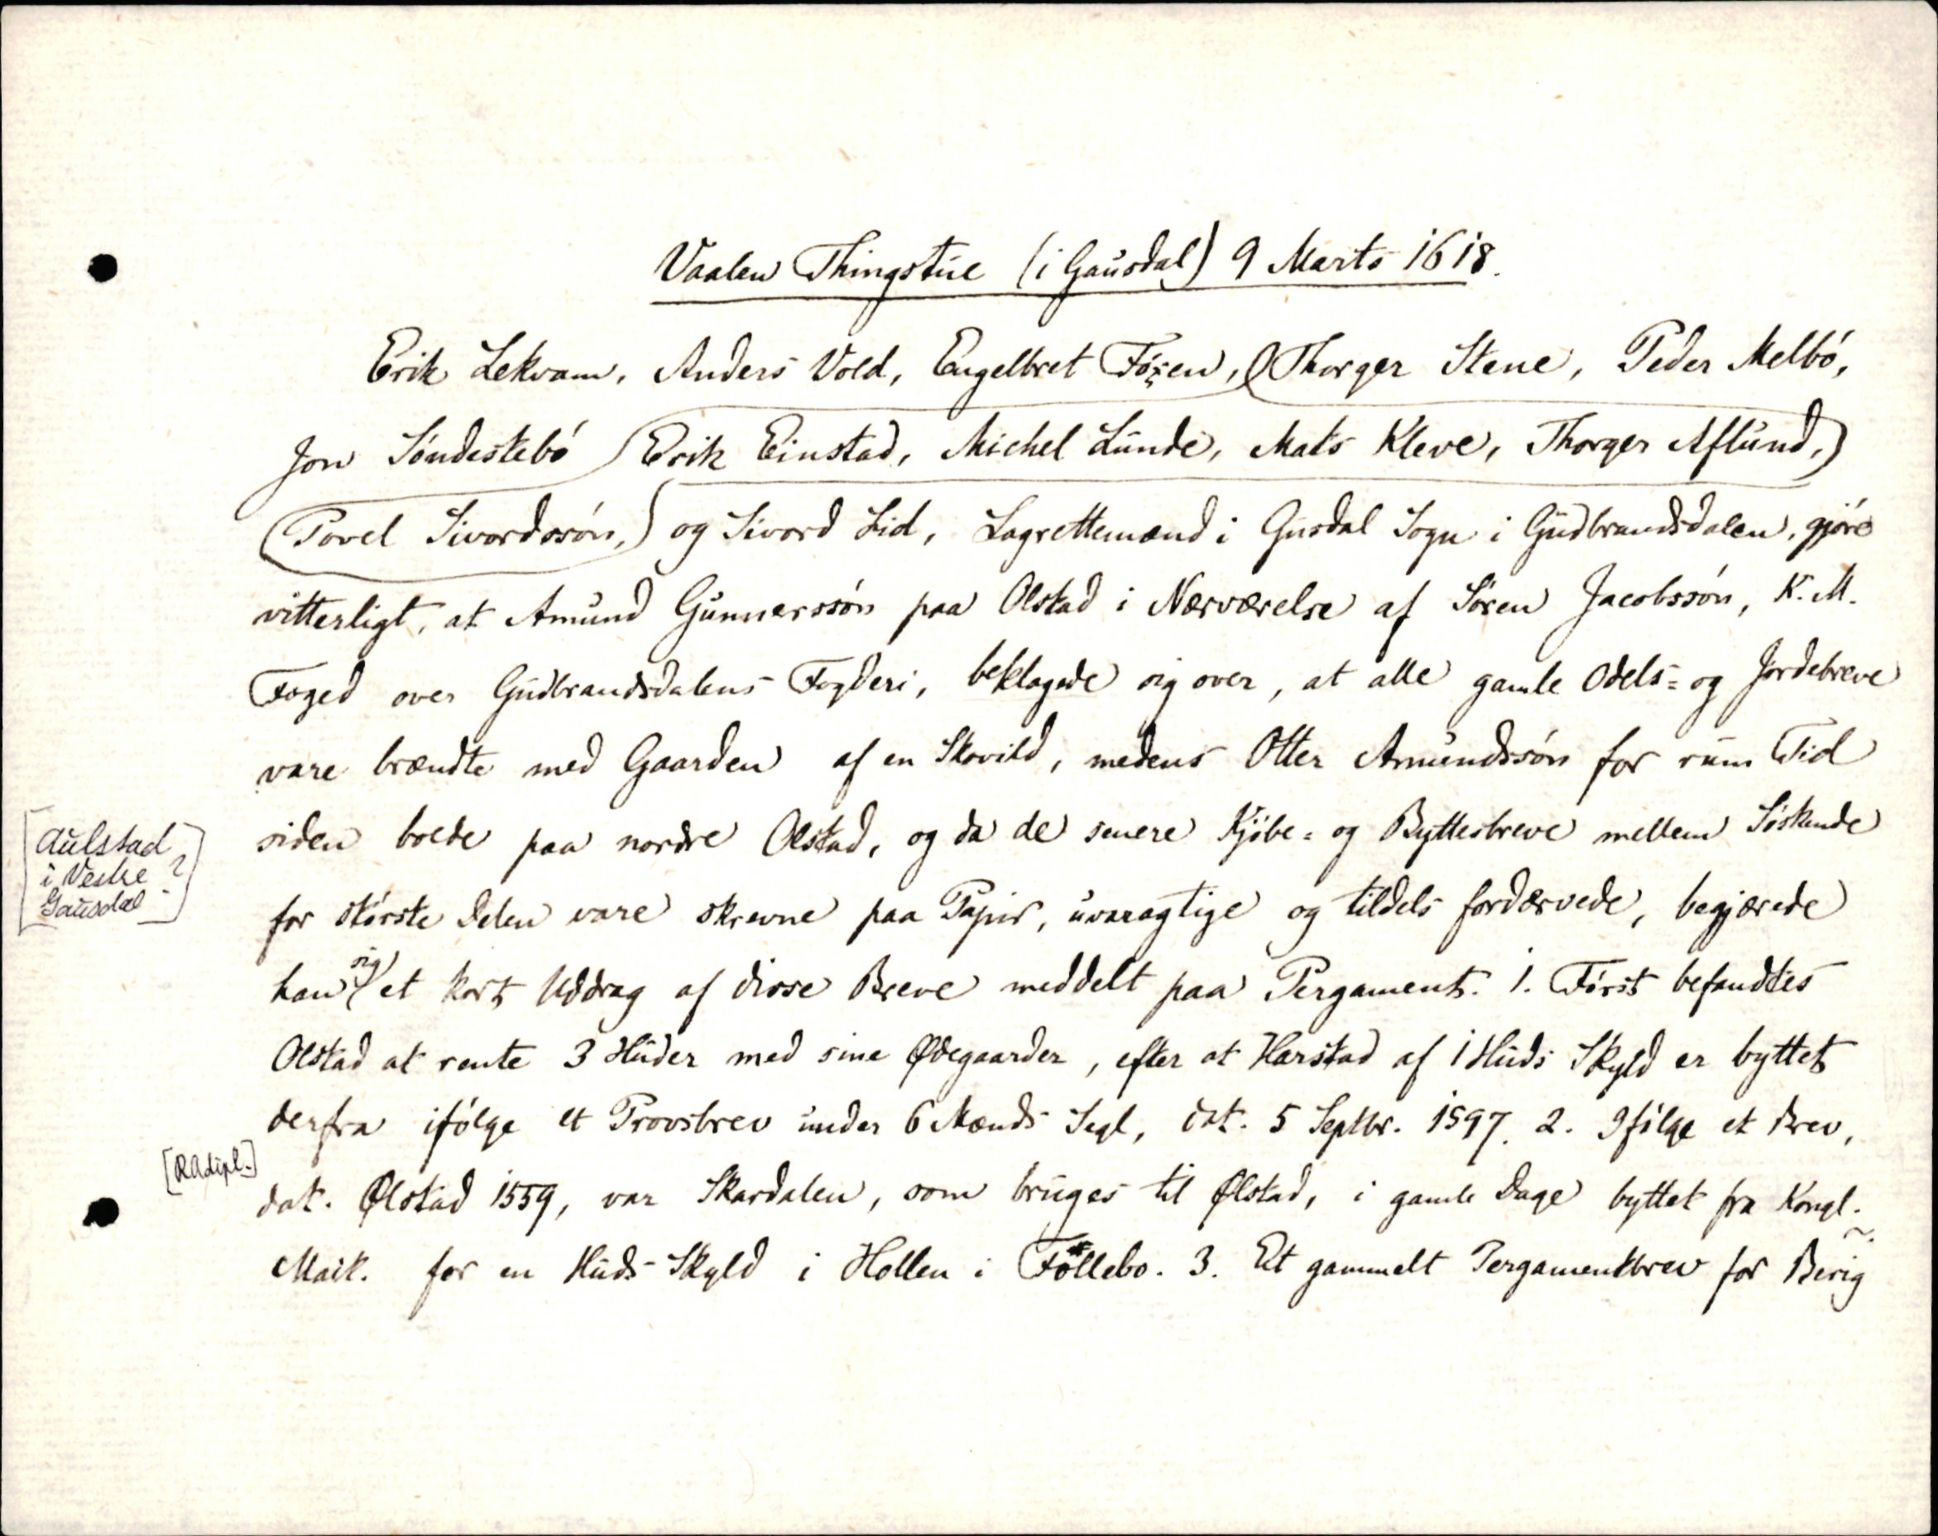 Vaalen Thingstue (i Gausdal) 9 Marts 1618.
Erik Lekvam, Anders Vold, Engelbret Foren, (Thorger Stene, Peder Melbó,
Jon Söndestebó (Erik Einstad, Michel Lunde, Mats Kleve, Thorger Aflund,)
(Povel Sivordssón,) og Sivord Lid, Lagrettemænd i Gusdal Sogn i Gudbrandsdalen, gjöre
vitterligt, at Amund Gunnerssón paa Olstad i Nærværelse af Sören Jacobssón, K. M.
Foged over Gudbrandsdalens Fogderi, beklagede sig over, at alle gamle Odels= og Jordebreve
vare brændte med Gaarden af en Skovild, medens Otter Amundssón for rum Tid
siden boede paa nordre Olstad, og da de senere Kjöbe= og Byttesbreve mellem Söskende
[Aulstad
i Vestre ?
Gausdal]
for störste Delen vare skrevne paa Papir, uvaragtige og tildels fordærvede, begjærede
han sig et kort Uddrag af disse Breve meddelt paa Pergament. 1. Först befandtes
Olstad at rente 3 Huder med sine Ødegaarder, efter at Harstad af 1 Huds Skyld er byttet
derfra ifólge et Provsbrev under 6 Mænds Segl, dat. 5 Septbr. 1597. 2. Ifólge et Brev,
[RA dipl.]
dat. Ølstad 1559, var Skardalen, som bruges til Ølstad, i gamle Dage byttet fra Kongl.
Maik. for en Huds Skyld i Hollen i Föllebo. 3. Et gammelt Pergamentbrev for Berig